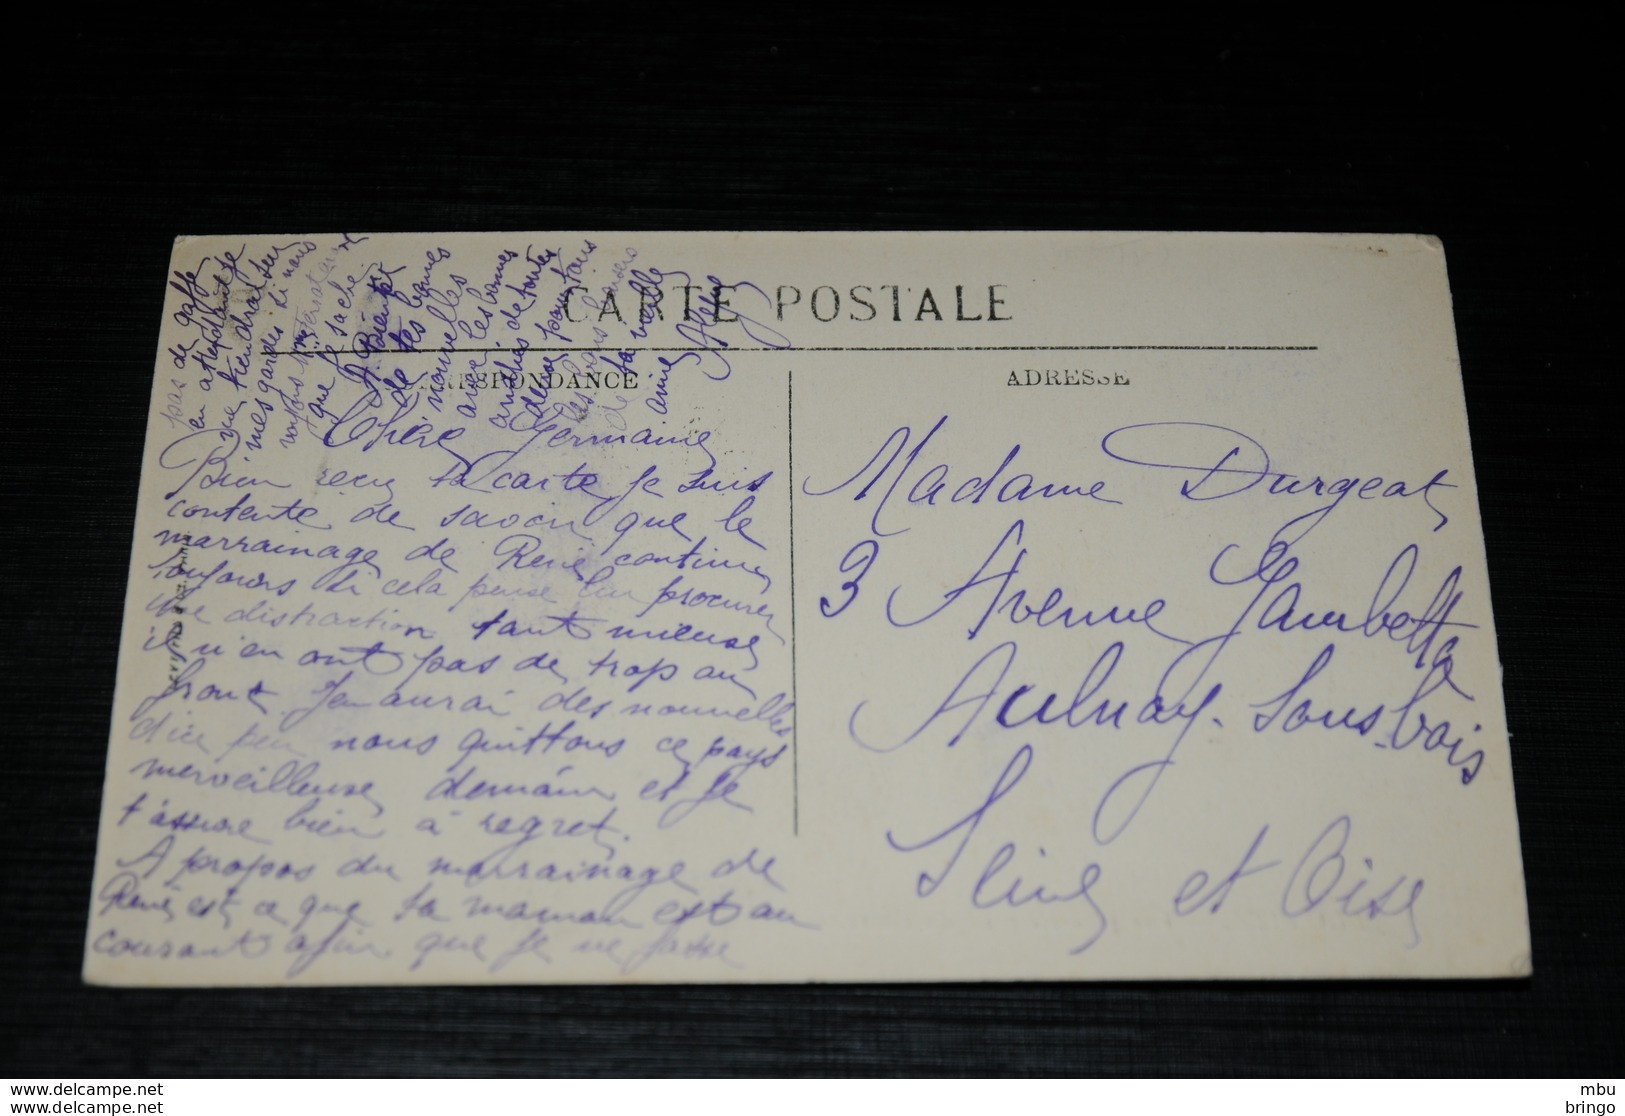 CARTE POSTALE
CORRESPONDANCE
ADRESSE
Chère Germaine
Bien reçu ta carte je suis
contente de savoir que le
marrainage de René continue
toujours si cela peut lui procurer
une distraction tant mieux
il n'en ont pas de trop au
front. J'en aurai des nouvelles
d'ici peu nous quittons ce pays
merveilleux demain et je
t'assure bien à regret.
A propos du marrainage de
René est ce que ta maman est au
courant afin que je ne fasse
pas de gaffe
en attendant je
me tiendrai sur
mes gardes si nous
voyons Mme
que je sache
A Bientôt
de tes bonnes
nouvelles
avec les bonnes
amitiés de tous
deux pour tous
les bons baisers
de ta vieille
amie
Madame Durgeat
3 Avenue Gambetta
Aulnay-Sous-bois
Seine et Oise
delcampe.net
delcampe.net
mbu
bringo